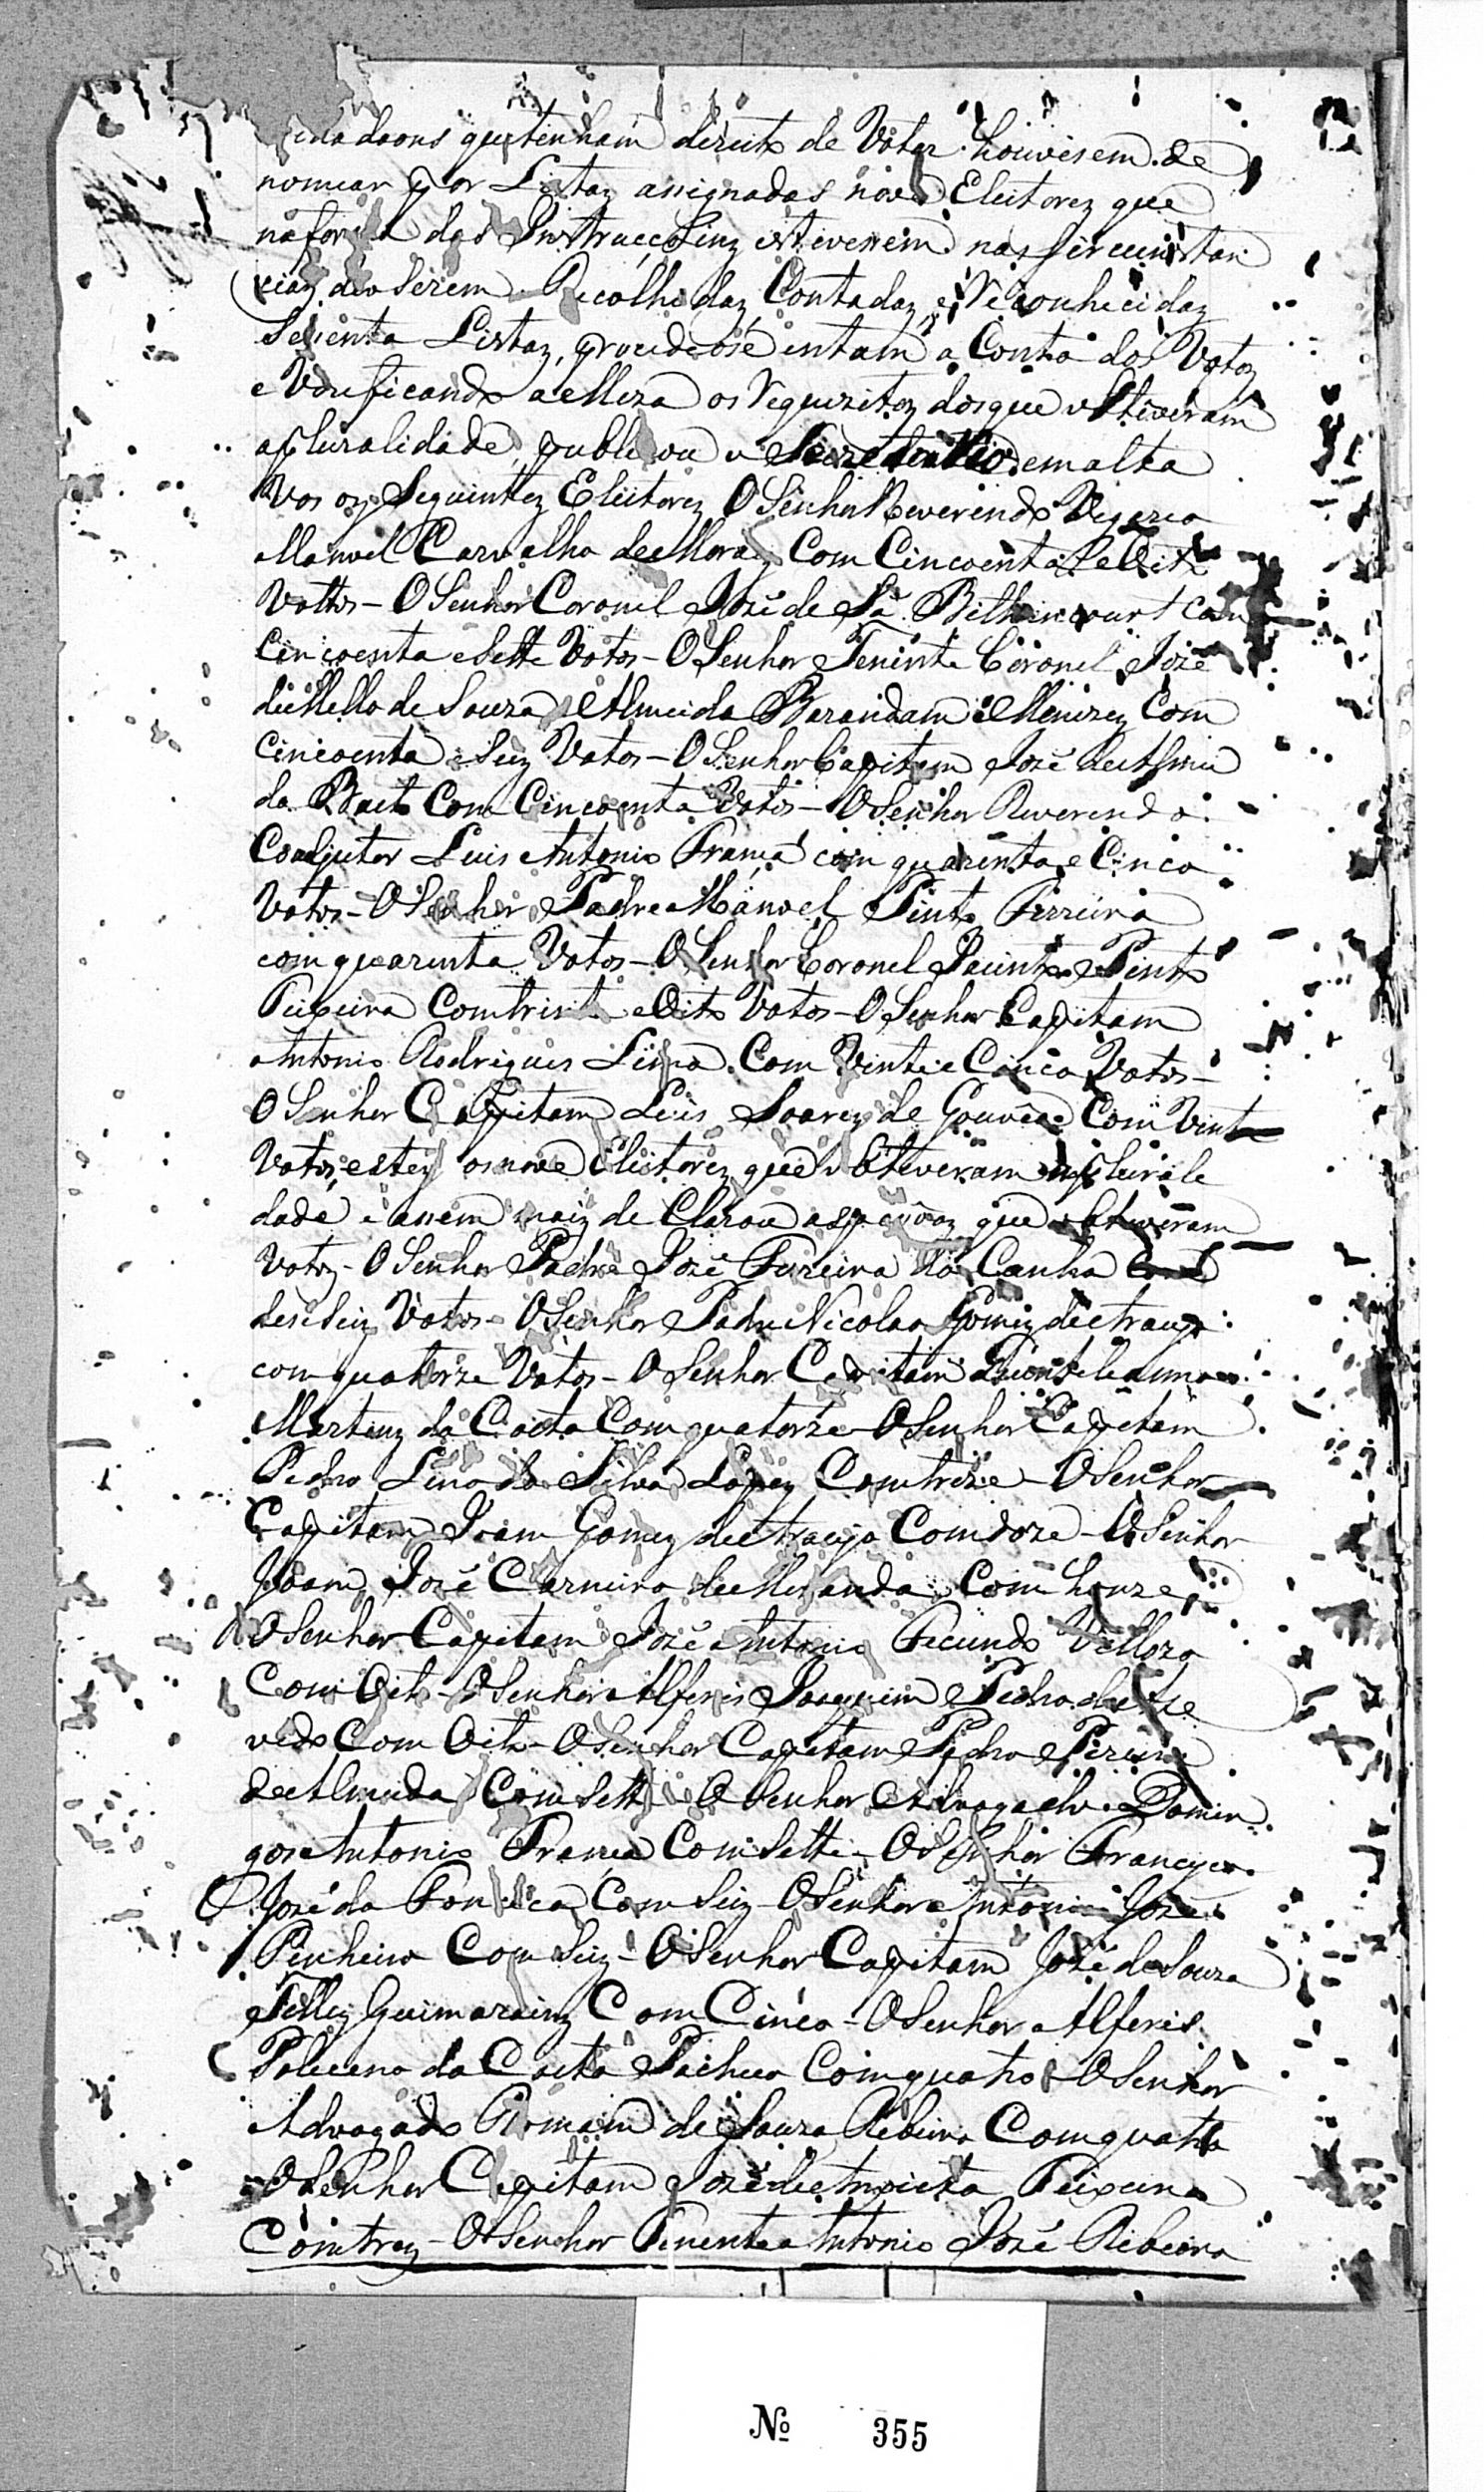 cidadaons que tenham direito de Votar houvesem de
nomear por Listas asignadas nove Eleitorez que
na forma das Instrucçoins estivessem nas circunstan
cias de o Serem. Recolhidaz, Contadaz, e Reconhecidaz
Secenta Listaz, procedeose entam a Conta dos Votoz
e Verificando a Meza os Requezitoz dos que obtiveram
apluralidade publicou o Secretario em alta
Vos os Seguintez Eleitorez O Senhor Reverendo Vigario
Manoel Carvalho de Moraiz Com Cincoenta e Oito
Vottos - O Senhor Coronel José de Sá Bithencourt com
Cincoenta e Sette Votos - O Senhor Tenente Coronel José
de Mello de Souza e Almeida Barandam e Menezez Com
Cincoenta e Seiz Votos - O Senhor Capitam José de Almei
da Com Cincoenta Votos - O Senhor Reverendo
Coadjutor Luis Antonio França com quarenta e Cinco
Votos - O Senhor Padre Manoel Pinto Ferreira
com quarenta Votos - O Senhor Coronel Jacinto Pinto
Teixeira Com trinta e Oito Votos - O Senhor Capitam
Antonio Rodrigues Lima Com Vinte e Cinco Votos -
O Senhor Capitam Luis Soarez de Gouvea Com Vinte
Votos, estez os nove Eleitorez que obtiveram apLurale
dade e asiem maiz de Clarou as pesoaz que obtiveram
Votoz - O Senhor Padre José Ferreira da Cunha Com
deseSeiz Votos - O Senhor Padre Nicolao Gomiz de Araujo
com quatorze Votos - O Senhor Capitam
Martinz da Costa Com quatorze - O Senhor Capitam
Pedro Lino da Silva Lopez Com treze - O Senhor
Capitam Joam Gomez de Araujo Com doze - O Senhor
Joam José Carneiro de Meranda Com honze
O Senhor Capitam José Antonio Facundo Velloza
Com Oito - O Senhor Alferis Joaquim Pedro de Aze
vedo Com Oito - O Senhor Capitam Pedro Pereira
de Almeida Com Sette - O Senhor Advogado Domin
gos Antonio França Com Sette - O Senhor Francisco
José da Fonceca Com Seiz - O Senhor Antonio José
Penheiro Com Seiz - O Senhor Capitam José de Souza
Tellez Guimarainz Com Cinco - O Senhor Alferis
Policeno da Costa Pacheco Com quatro - O Senhor
Advogado Romam de Souza Ribeiro Com quatro
O Senhor Capitam José de Anxieta Teixeira
Com trez - O Senhor Tenente Antonio José Ribeiro
Nº 355